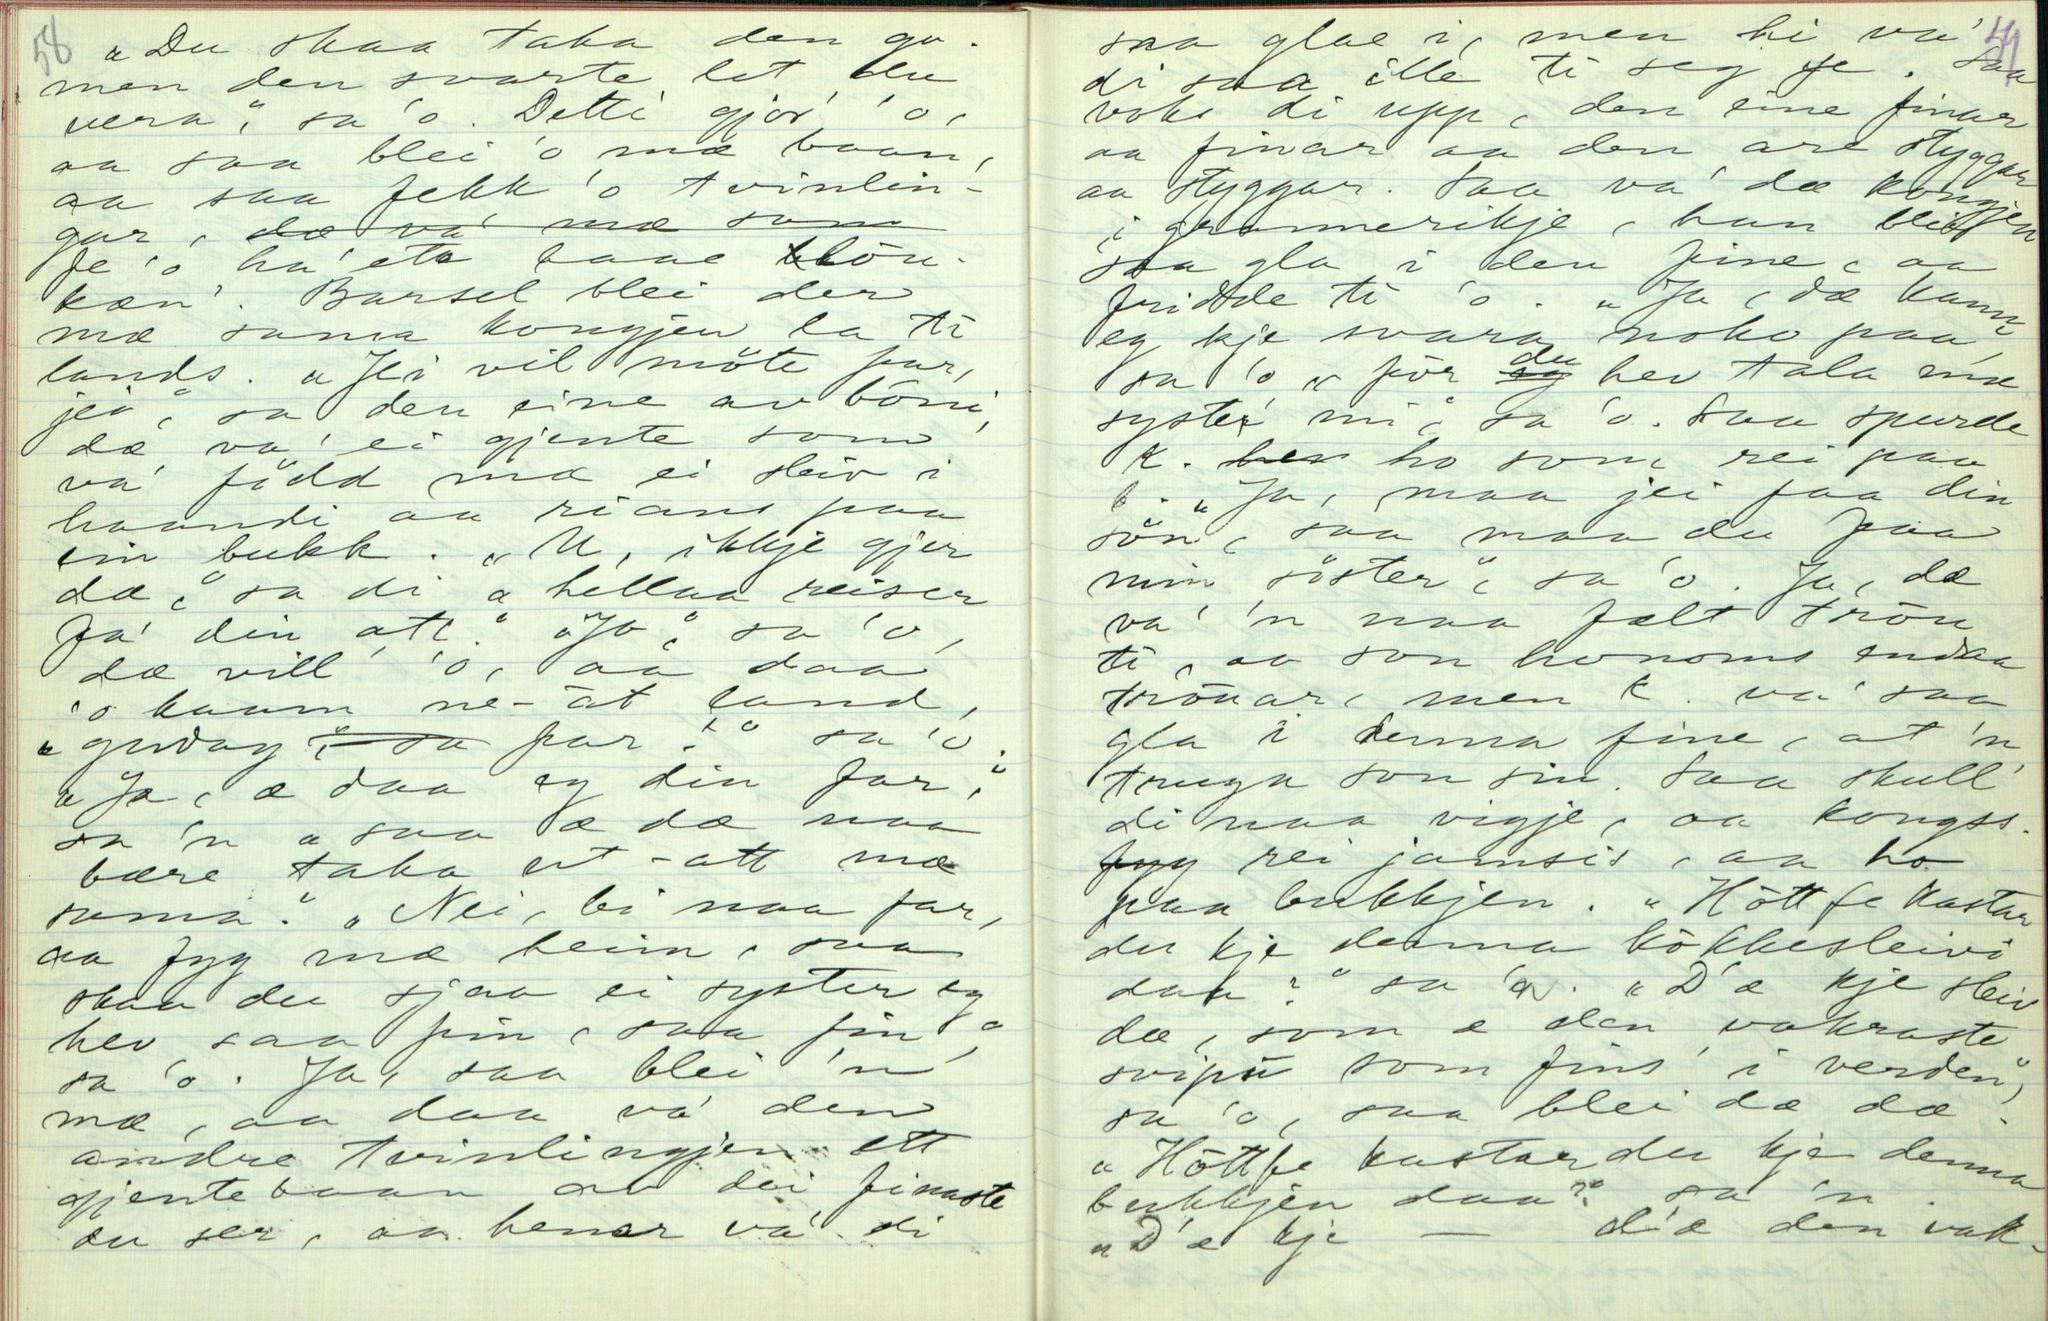 58
„Du skaa taka den go.
men den svarte let du
vera," sa 'o. Detti gjor' 'o,
aa saa blei 'o mæ baan,
aa saa fekk 'o tvinlin-
gar, dæ va' mæ sama
fe 'o ha' ete baae blön-
kæn'. Barsel blei der
mæ sama kongjen la ti
lands. „Jei vil möte far,
jei," sa den eine av böni,
dæ va' ei gjente som
va' född mæ ei sleiv i
haandi aa rians paa
ein bukk. „U, ikkje gjer
dæ," sa di „hellaa reiser
fa' din att." „Jo," sa 'o,
dæ vill 'o, aa daa
'o kaam ne-åt land,
„gudag," sa far." sa 'o.
„Ja, æ daa eg din far,"
sa 'n „saa æ dæ naa
bære taka ut-att mæ
sama." „Nei, bi naa far,
aa fyg mæ heim, saa
skaa du sjaa ei syster eg
hev saa fin, saa fin,"
sa 'o. Ja, saa blei 'n
mæ, aa daa va' den
andre tvinlingjen ett
gjentebaan av dei finaste
du ser, aa henar va' di
59
saa glae i, men hi va'
di saa ille ti seg fe. Saa
voks di upp, den eine finar
aa finar aa den are styggar
aa styggar. Saa va' dæ kongjen
i grannerikje, han blei
saa gla i den fine, aa
fridde ti 'o. „Ja, dæ kann
eg kje svara noko paa,
sa 'o „för du hev tala mæ
syster mi," sa 'o. Saa spurde
K. ho som rei paa
b. „Ja, maa jei faa din
sön, saa maa du faa
min söster", sa 'o. Ja, dæ
va' 'n naa fælt trön
ti, aa son honoms endaa
trönar, men K. va' saa
gla i denna fine, at 'n
truga son sin. Saa skull'
di naa vigje, aa kongss.
fyg rei jamsis, aa ho
paa bukkjen. „Hött fe kastar
du kje denna kökkesleivi
daa?" sa 'n. „D'æ kje sleiv
dæ, som æ den vakraste
svipū som fins' i verden",
sa 'o, saa blei dæ dæ.
„Hött fe kastar du kje denna
bukkjen daa?" sa 'n.
„D'æ kje — d'æ den vak-